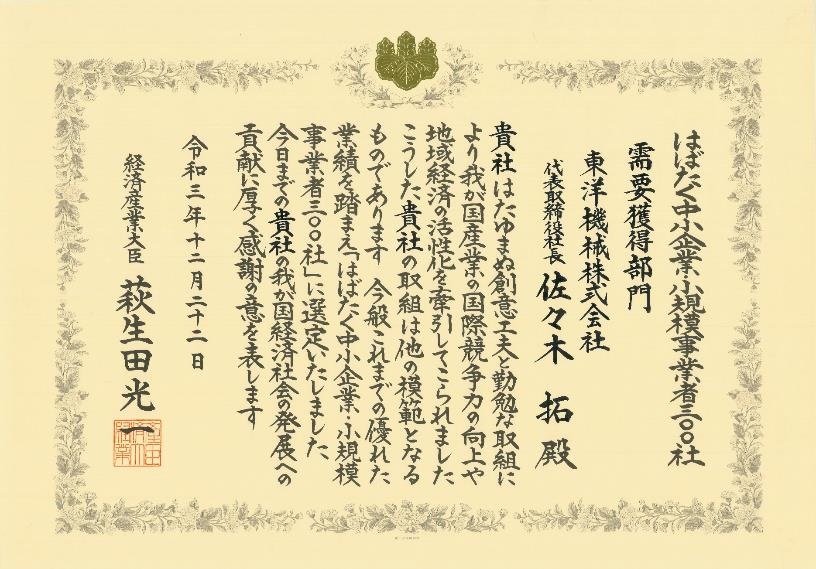 はばたく中小企業・小規模事業者三〇〇社
需要獲得部門
東洋機械株式会社
代表取締役社長 佐々木 拓 殿
貴社はたゆまぬ創意工夫と勤勉な取組に
より我が国産業の国際競争力の向上や
地域経済の活性化を牽引してこられました
こうした貴社の取組は他の模範となる
ものであります 今般これまでの優れた
業績を踏まえ「はばたく中小企業・小規模
事業者三〇〇社」に選定いたしました
今日までの貴社の我が国経済社会の発展への
貢献に厚く感謝の意を表します
令和三年十二月二十二日
経済産業大臣 萩生田光一